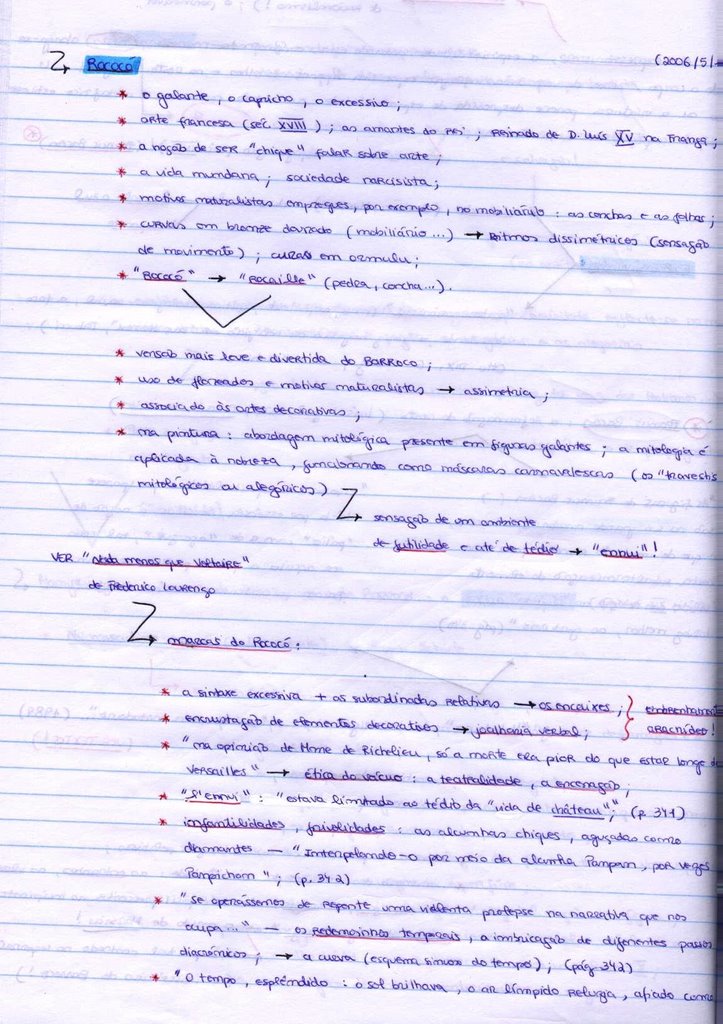 (2006/5/
Rococó
* o galante, o capricho, o excessivo;
* arte francesa (séc. XVIII); as amantes do Rei; Reinado de D. Luís XV na França;
* a noção de ser "chique" falar sobre arte;
* a vida mundana; sociedade narcisista;
* motivos naturalistas empregues, por exemplo, no mobiliário: as conchas e as folhas;
* curvas em bronze dourado (mobiliário...) → Ritmos dissimétricos (sensação
de movimento); em ormulu;
* "Rococó" → "Rocaille" (pedra, concha...).
* versão mais leve e divertida do BARROCO;
* uso de floreados e motivos naturalistas → assimetria;
* associado às artes decorativas;
* na pintura: abordagem mitológica presente em figuras galantes; a mitologia é
aplicada à nobreza, funcionando como máscaras carnavalescas (os "travestis
mitológicos ou alegóricos)
sensação de um ambiente
de futilidade e até de tédio → "ennui"!
VER "Nada menos que Voltaire"
de Frederico Lourenço
marcas do Rococó:
* a sintaxe excessiva + as subordinadas relativas → os encaixes;
* encrustação de elementos decorativos → joalharia verbal; aracnídeo!
* "na opinião de Mme de Richelieu, só a morte era pior do que estar longe de
Versailles" → ética do voicuo: a teatralidade, a encenação;
* "l'ennui": "estava limitado ao tédio da "vida de château"; (p. 341)
* infantilidades, frivolidades: as alcunhas chiques, aguçadas como
diamantes — "Interpelando-o por meio da alcunha Pampam, por vezes
Panpichon"; (p. 342)
* "se operássemos de repente uma violenta prolepse na narrativa que nos
ocupa..." — os Redemoinhos temporais, a imbricação de diferentes passos
diacrónicos; → a curva (esquema sinuoso do tempo); (pág. 342)
* "O tempo, esplêndido: o sol brilhava, o ar límpido refulgia, afiado como